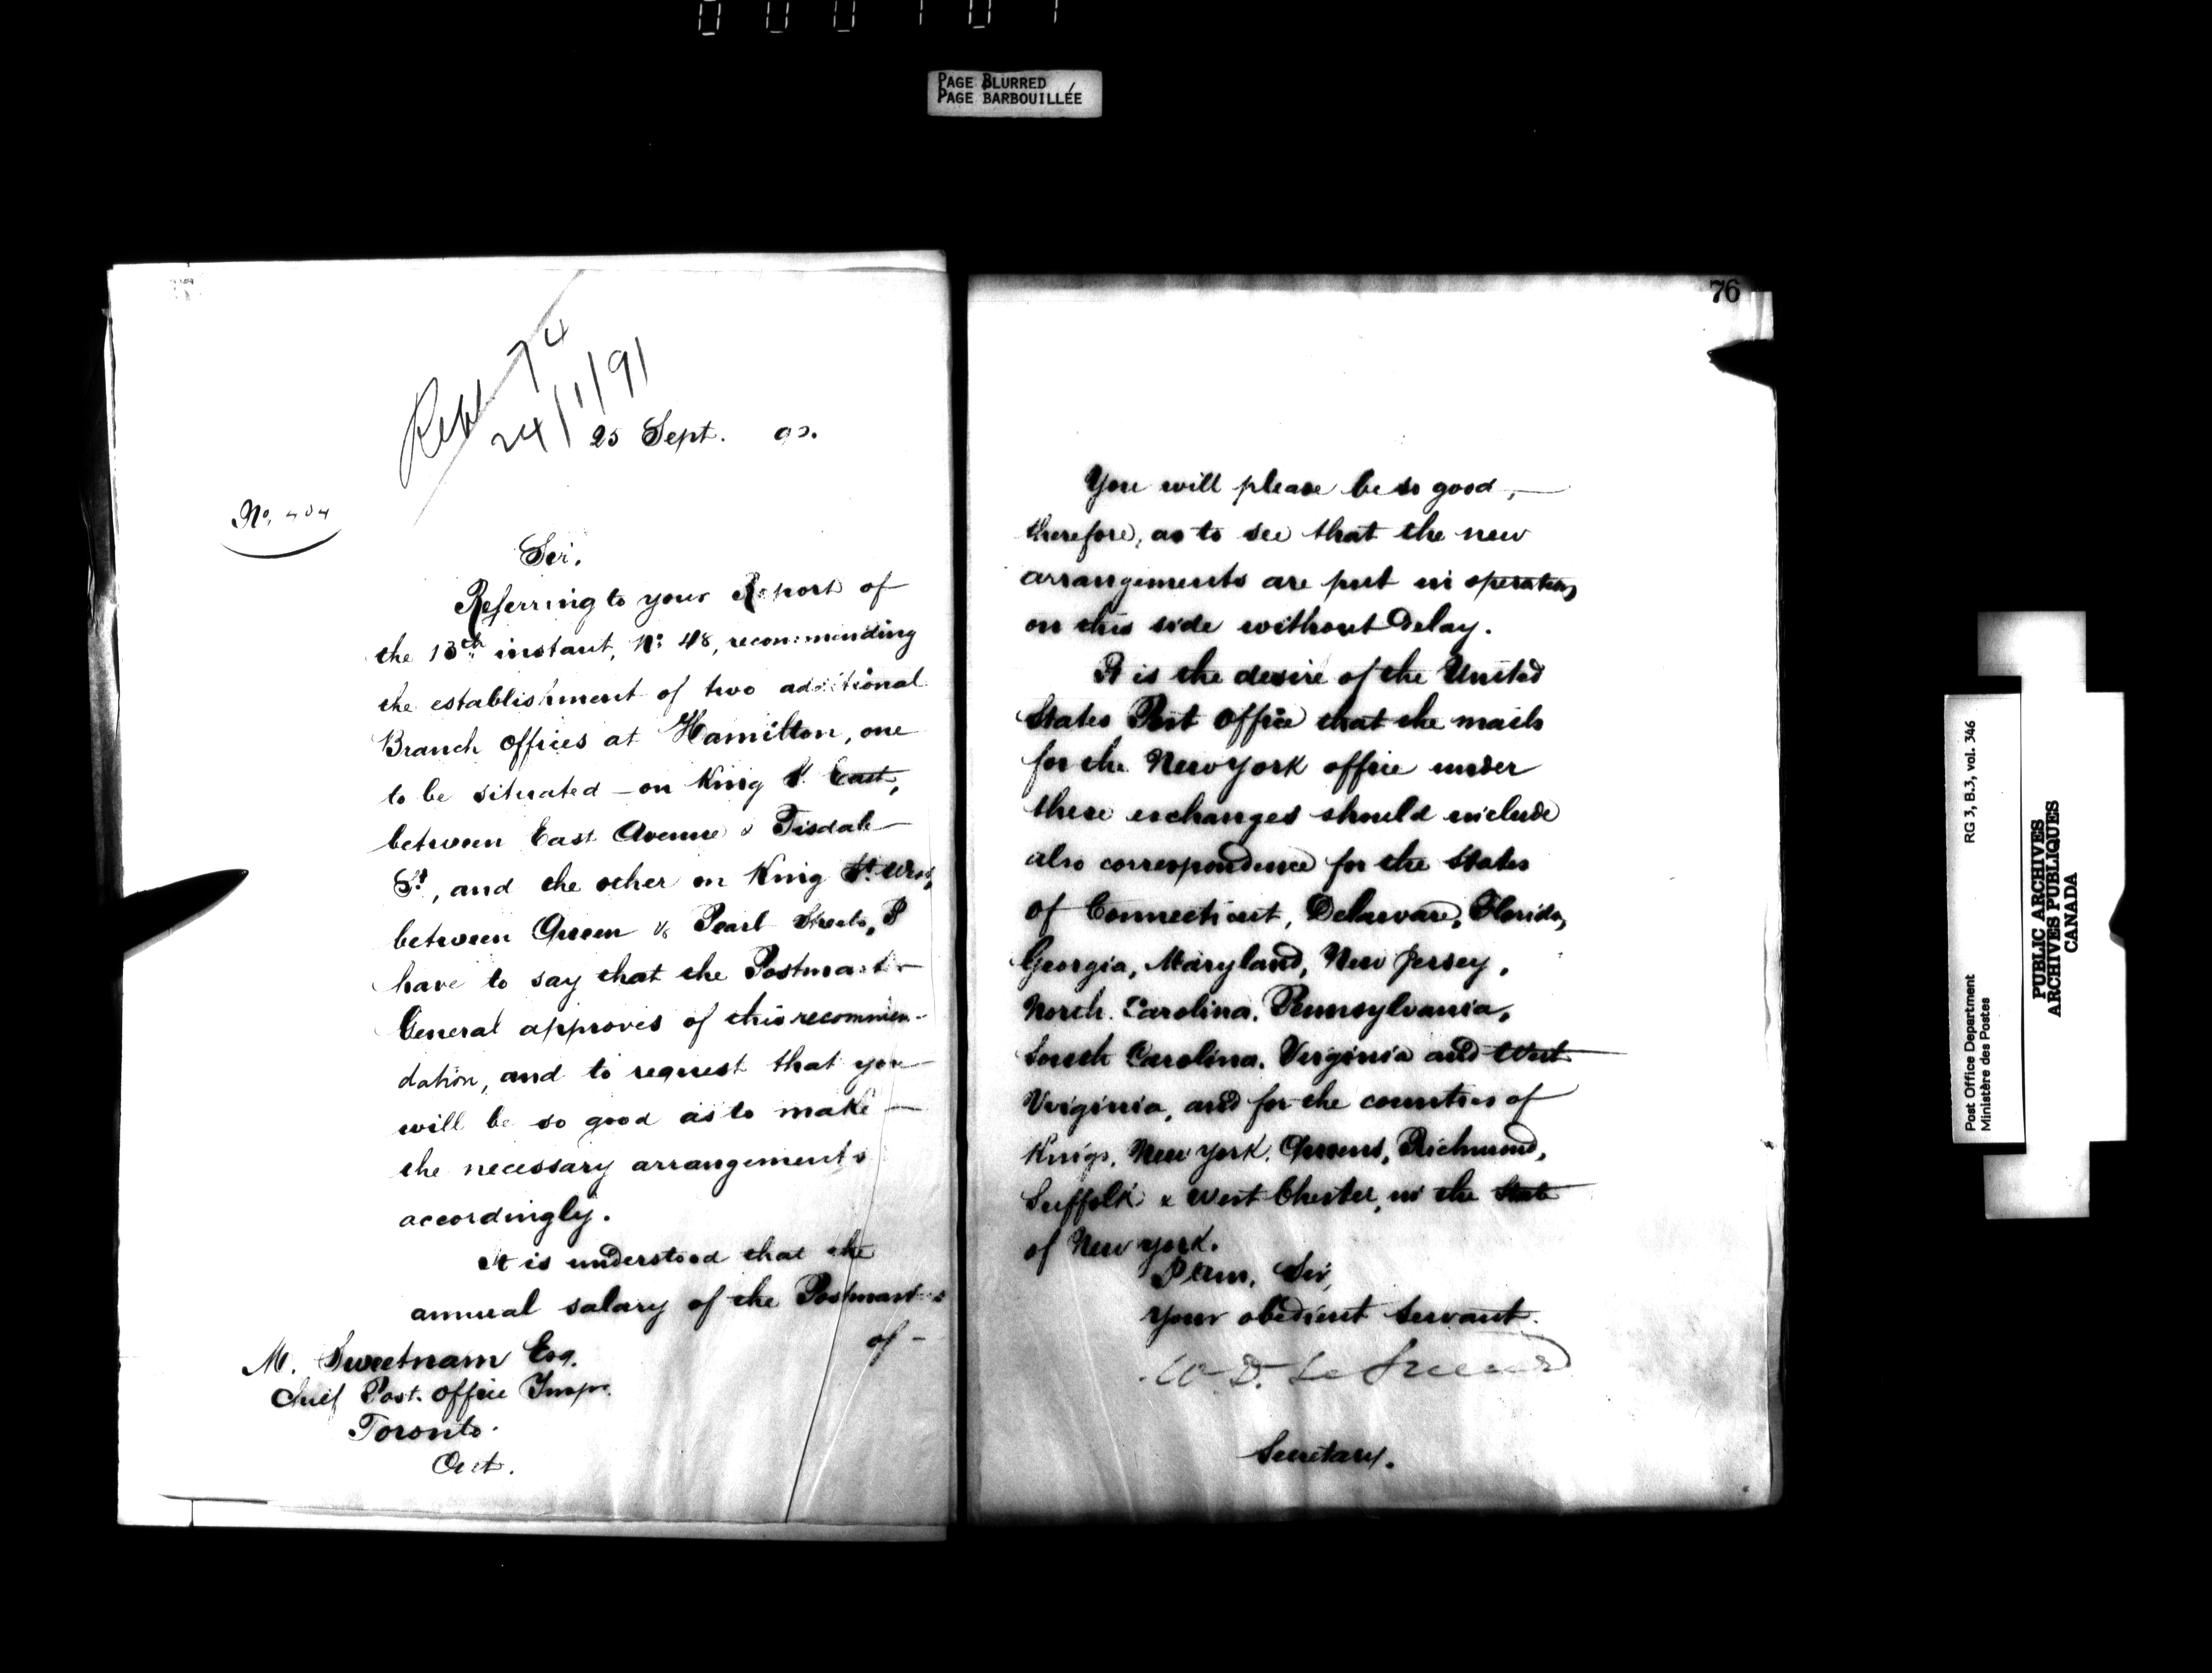 PAGE BLURRED
PAGE BARBOUILLÉE
24/1/91
25 Sept. 90.
No. 404
Sir,
Referring to your Report of
the 13th instant, No 48, recommending
the establishment of two additional
Branch Offices at Hamilton, one
to be situated on King St. East,
between East Avenue & Tisdale
St, and the other on King St. West,
between Queen & Pearl Streets, I
have to say that the Postmaster
General approves of this recommen-
dation, and to request that you
will be so good as to make
the necessary arrangements
accordingly.
It is understood that the
annual salary of the Postmasters
of
M. Sweetnam Esq.
Chief Post Office Inspr.
Toronto.
Ont.
76
You will please be so good,
therefore, as to see that the new
arrangements are put in operation
on this side without delay.
It is the desire of the United
States Post Office that the mails
for the New York office under
these exchanges should include
also correspondence for the States
of Connecticut, Delaware, Florida,
Georgia, Maryland, New Jersey,
North Carolina, Pennsylvania,
South Carolina, Virginia and West
Virginia, and for the counties of
Kings, New York, Queens, Richmond,
Suffolk & West Chester, in the State
of New York.
I am, Sir,
Your obedient Servant.
W. D. LeSueur
Secretary.
Post Office Department
Ministère des Postes
RG 3, B.3, vol. 346
PUBLIC ARCHIVES
ARCHIVES PUBLIQUES
CANADA